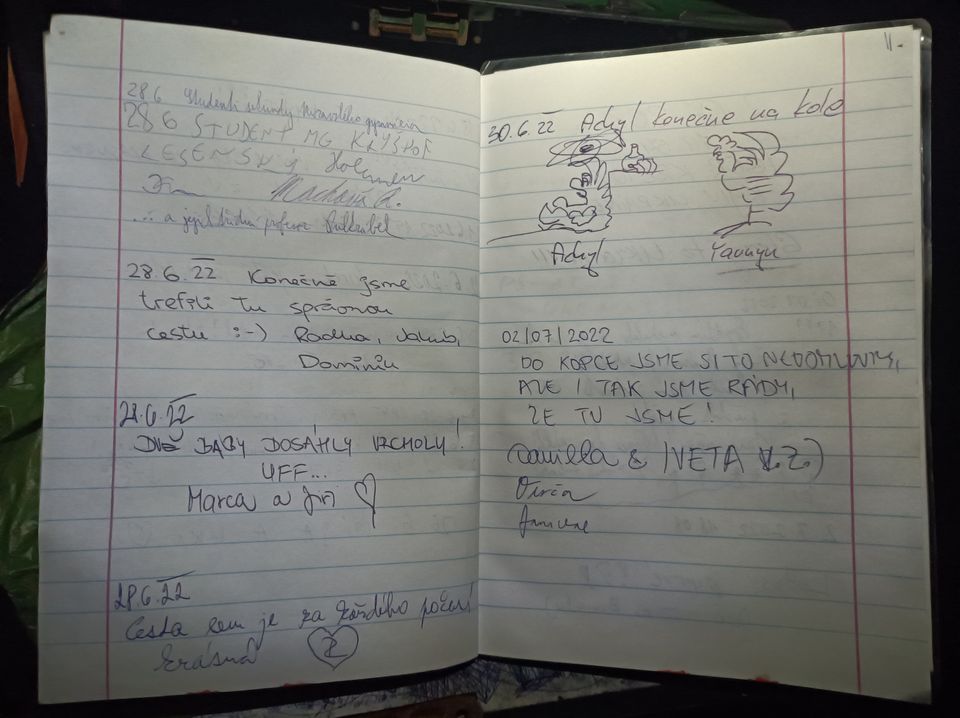 28.6 Studenti sekundy Mozartова gymnázia
28 6 STUDENT, MG KRYŠTOF
LESENSKÝ, Holemer
Machová R.
... a jejich třídní profesor
28.6.22 Konečně jsme
trefili tu správnou
cestu :-) Radka, Jakub,
Dominik
28.6.22
DVĚ BÁBY DOSÁHLY VRCHOLU!
UFF...
Marca a Jiri
28.6.22
Cesta sem je za každého počasí
krásná
11.
30.6.22 Adryl konečně na kole
Adryl
02/07/2022
DO KOPCE JSME SI TO NEDOMLUVILY,
ALE I TAK JSME RÁDY,
ŽE TU JSME!
Daniella & IVETA